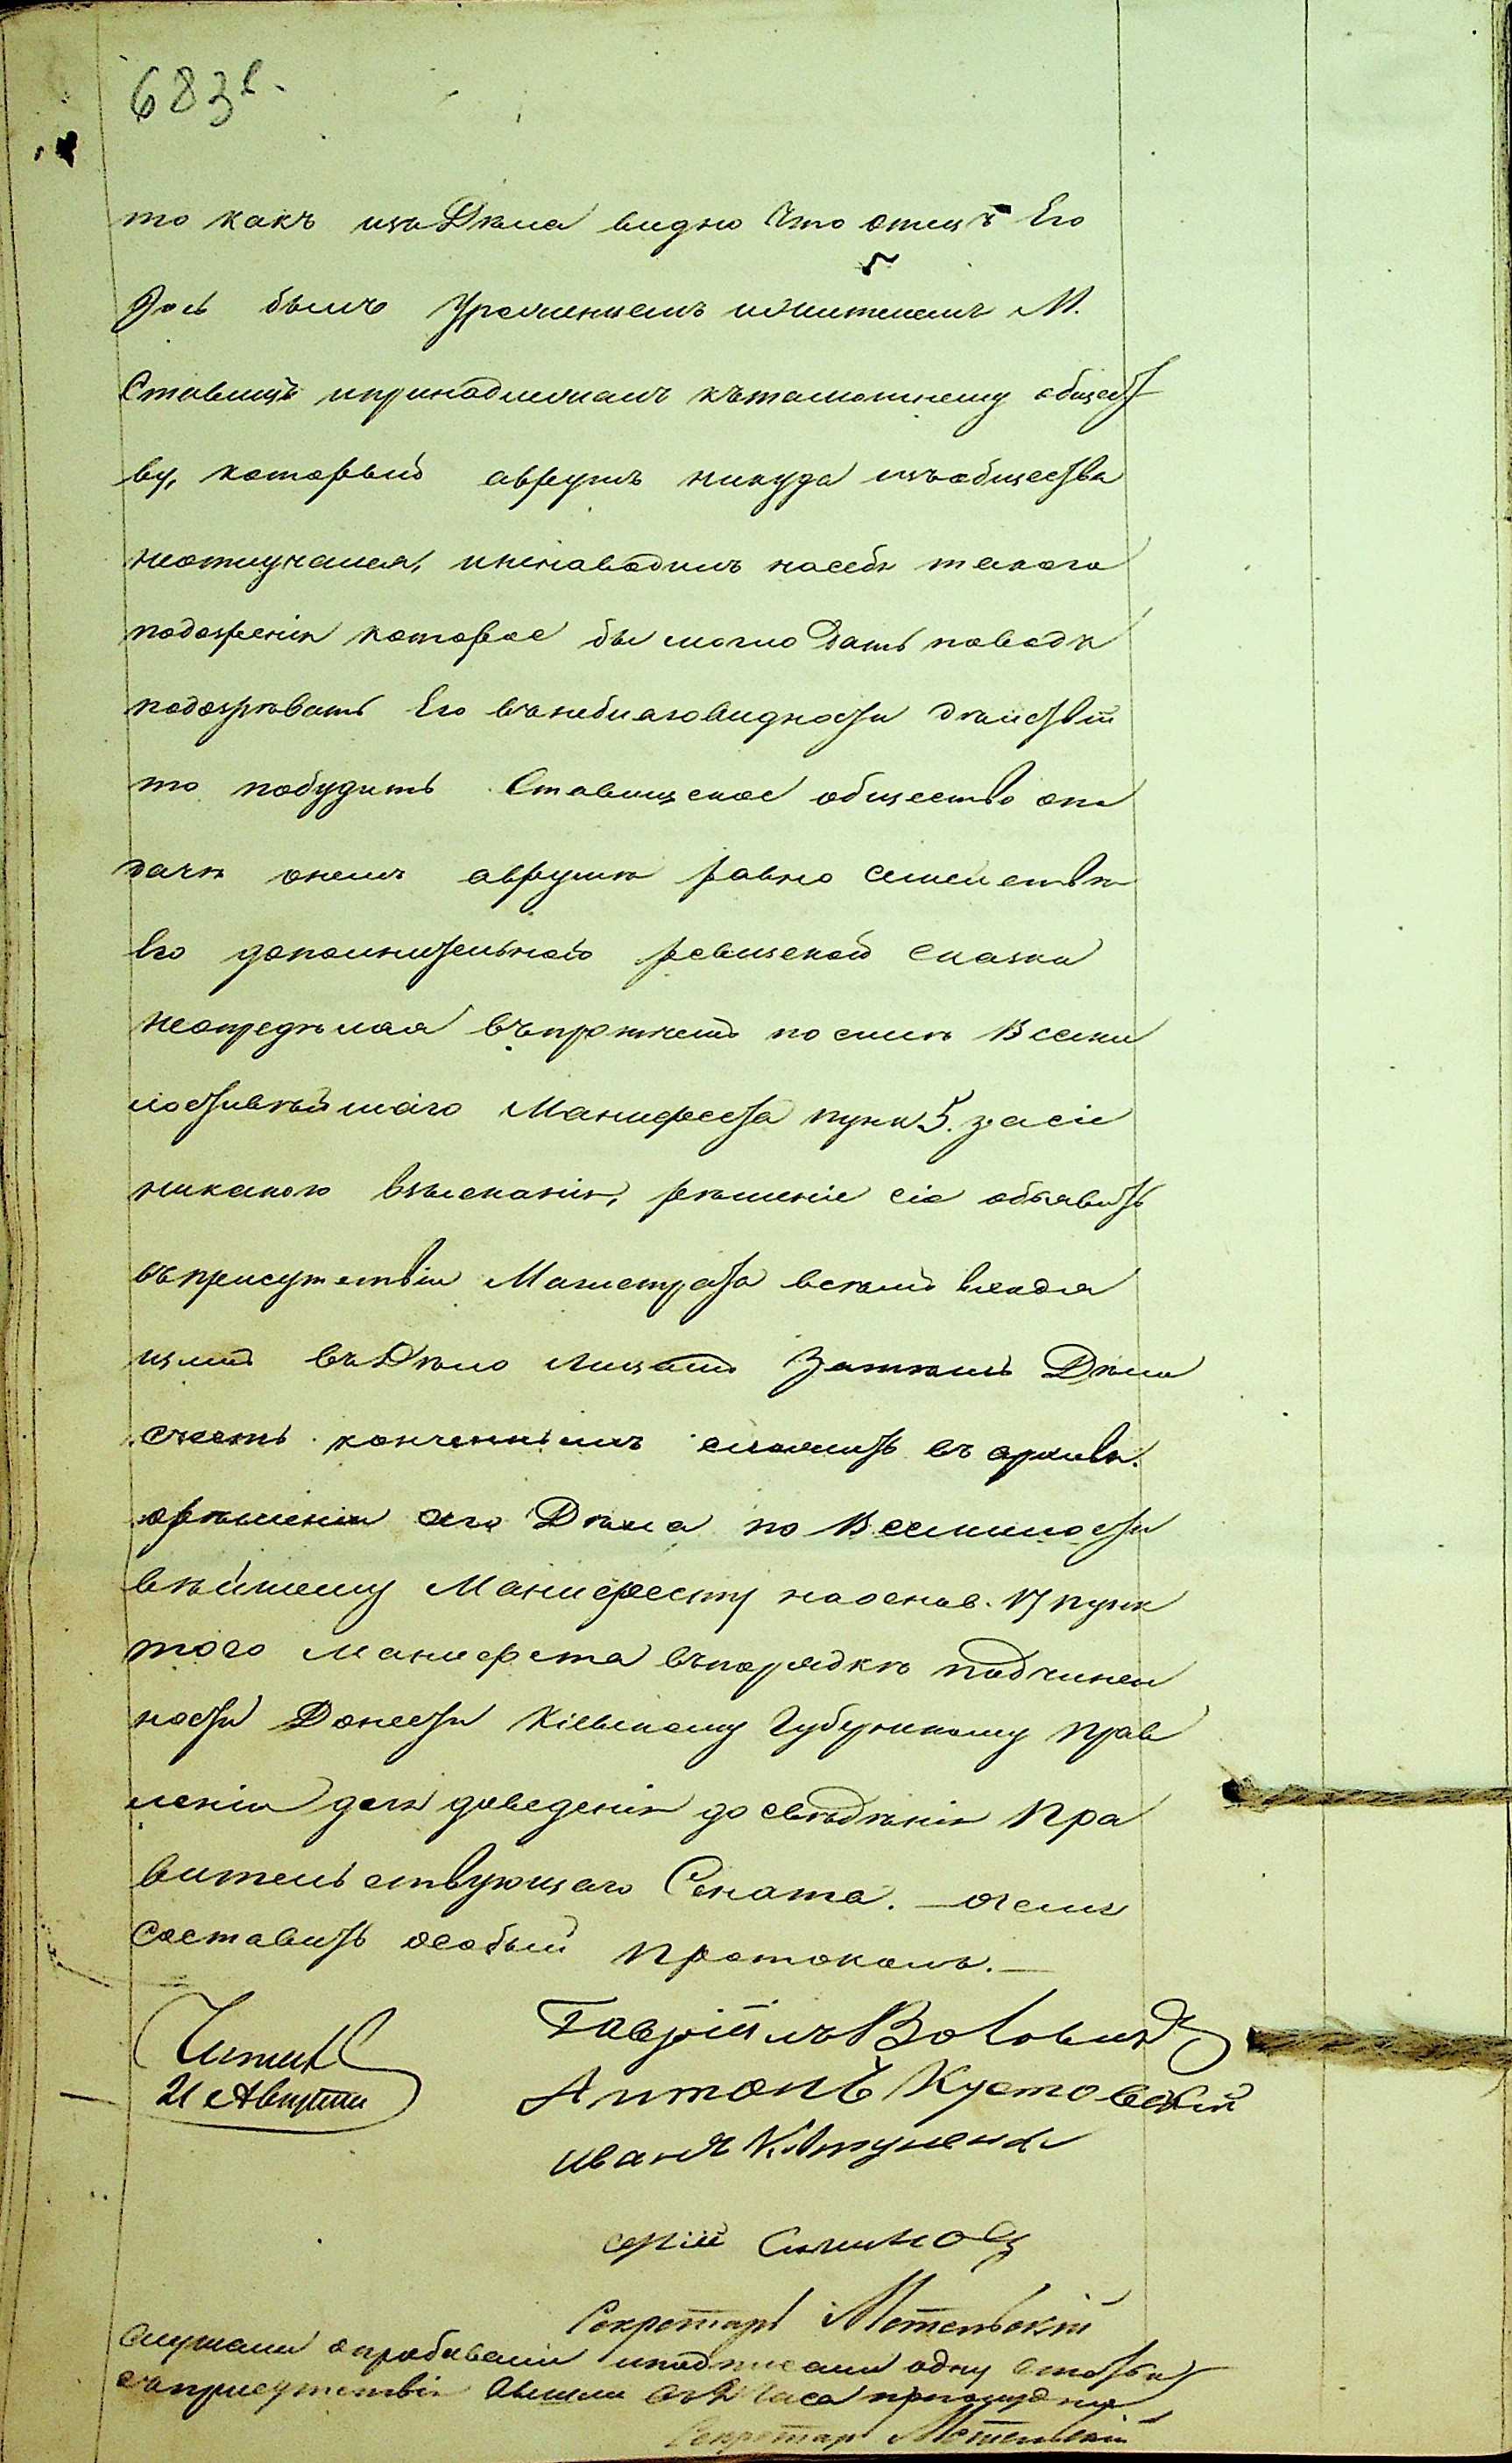 683
то какъ изъ Дѣла видно что отецъ Его
Іось былъ Уроженцемъ и жителемъ М.
Ставищъ и принадлежалъ къ тамошнему общест
ву, который аврумъ никуда изъ общества
неотлучался, и ненаводилъ на себя такого
подозренія которое бы могло дать поводъ
подозрѣвать Его въ неблаговидности дѣйствій
то побудить Ставищское общество опо
дачи онемъ аврумѣ равно семействѣ
Его дополнительной ревизской сказки
неопредѣляя въпрочемъ по силѣ Всеми
лостивѣйшаго Манифеста пунк 5. за сіе
никакого взысканія, рѣшеніе сіе объявить
въ присутствіи Магистрата всѣмъ входя
щимъ въ Дѣло лицамъ Затѣмъ Дѣло
счесть конченнымъ сложить въ архивъ.
орѣшеніи сего Дѣла по Всемилости
вѣйшему Манифесту на основ. 17 пунк
того манифета въ порядкѣ подчинен
ности Донести Кіевскому Губернскому прав
ленію для доведенія до свѣдѣнія Пра
вительствующаго Сената. — о чемъ
составить особый протоколъ. —
Гавріилъ
Читалъ
21 Августа
Антонъ Кустовскій
Иванъ
Сергій
Секретарь Мотельскій
Слушали опробивали и подписали одну статью
съ присутствія вышли въ 2 часа
Секретарь Мотельскій